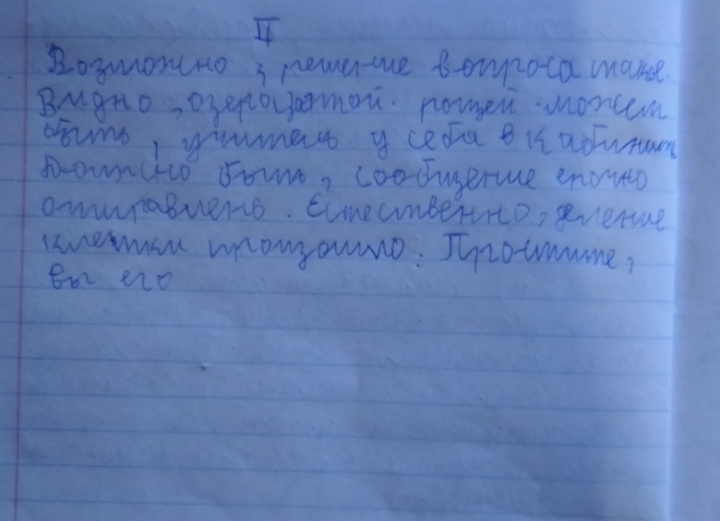 II
Возможно, решение вопроса такое.
Видно, озеро за этой рощей. может
быть, учитель у себя в кабинете
Должно быть, сообщение срочно
отправлень. Естественно, деление
клетки произошло. Простите,
вы его